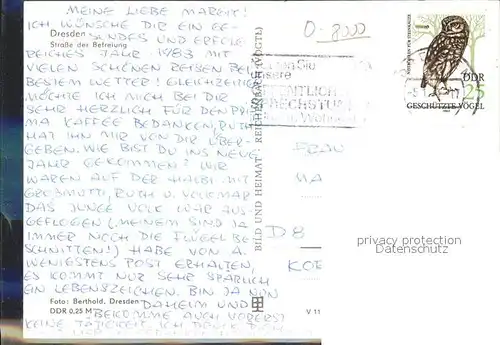 MEINE LIEBE MARGIT!
ICH WÜNSCHE DIR EIN GE-
Dresden
SUNDES UND ERFOLG
Straße der Befreiung
REICHES JAHR 1983 MIT
VIELEN SCHÖNEN REISEN BEI
BESTEM WETTER! GLEICHZEITIG
MÖCHTE ICH MICH BEI DIR
SEHR HERZLICH FÜR DEN PRI-
MA KAFFEE BEDANKEN, RUTH
HAT IHN MIR VON DIR ÜBER-
GEBEN. WIE BIST DU INS NEUE
JAHR GEKOMMEN? WIR
WAREN AUF DER HALBI MIT
GROSSMUTTI, RUTH U. VOLKMAR
DAS JUNGE VOLK WAR AUS-
GEFLOGEN (MEINEM SIND JA
IMMER NOCH DIE FLÜGEL BE-
SCHNITTEN!) HABE VON A.
WENIGSTENS POST ERHALTEN,
ES KOMMT NUR SEHR SPÄRLICH
EIN LEBENSZEICHEN. BIN JA NUN
Foto: Berthold, Dresden
DAHEIM UND
DDR 0,25 M
BEKOMME AUCH VORERST
KEINE TÄTIGKEIT. ICH DENKE
BILD UND HEIMAT REICHENBACH (VOGTL)
V 11
O-8000
DDR
25
GESCHÜTZTE VÖGEL
FRAU
MA
D 8
KOE
privacy protection
Datenschutz